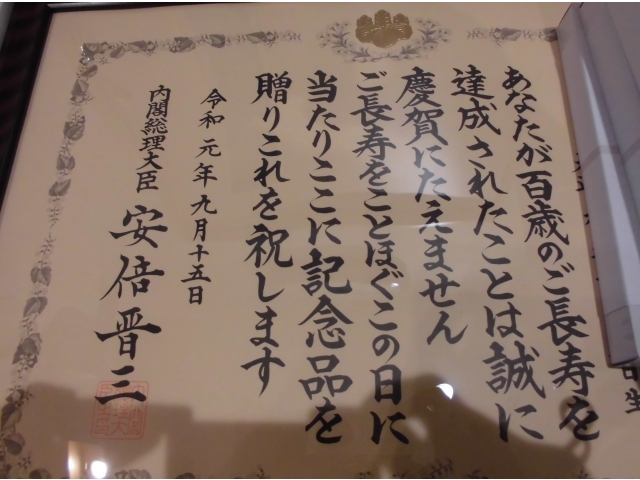 あなたが百歳のご長寿を
達成されたことは誠に
慶賀にたえません
ご長寿をことほぐこの日に
当たりここに記念品を
贈りこれを祝します
令和元年九月十五日
内閣総理大臣 安倍晋三